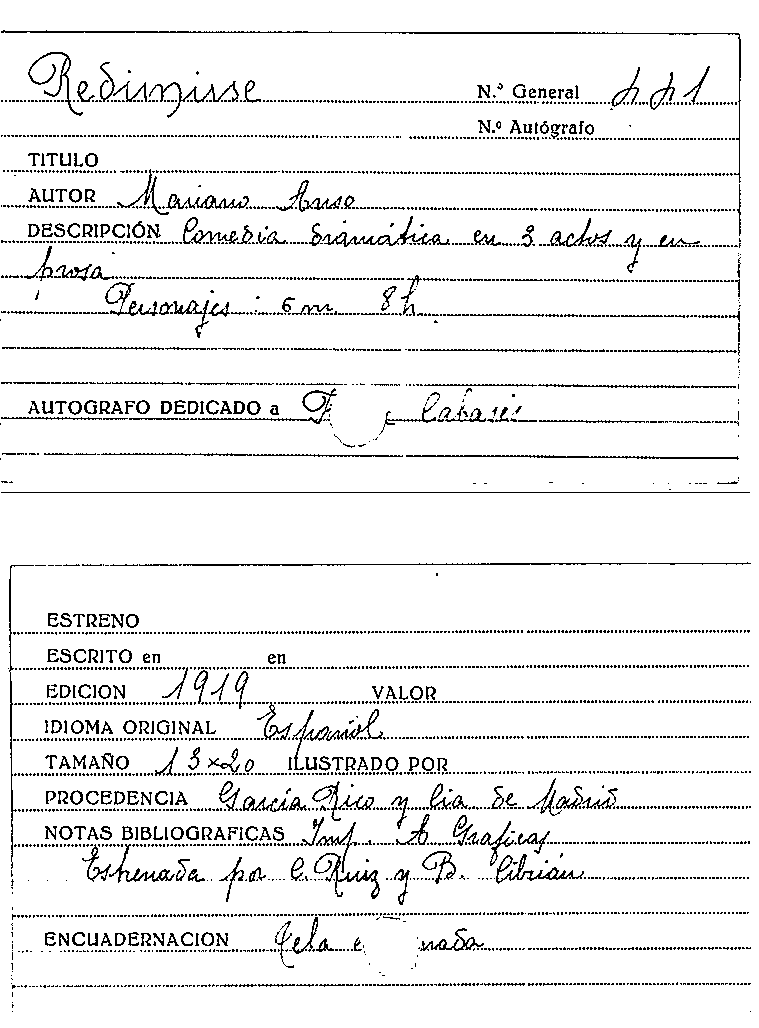 Redimirse
N.º General 441
N.º Autógrafo
TITULO
AUTOR Mariano Anso
DESCRIPCIÓN Comedia dramática en 3 actos y en
prosa
Personajes: 6 m. 8 h.
AUTOGRAFO DEDICADO a Cabasés
ESTRENO
ESCRITO en en
EDICION 1919 VALOR
IDIOMA ORIGINAL Español
TAMAÑO 13x20 ILUSTRADO POR
PROCEDENCIA García Rico y Cia de Madrid
NOTAS BIBLIOGRAFICAS Imp. A Graficas
Estrenada por C. Ruiz y B. Cibrián
ENCUADERNACION Tela